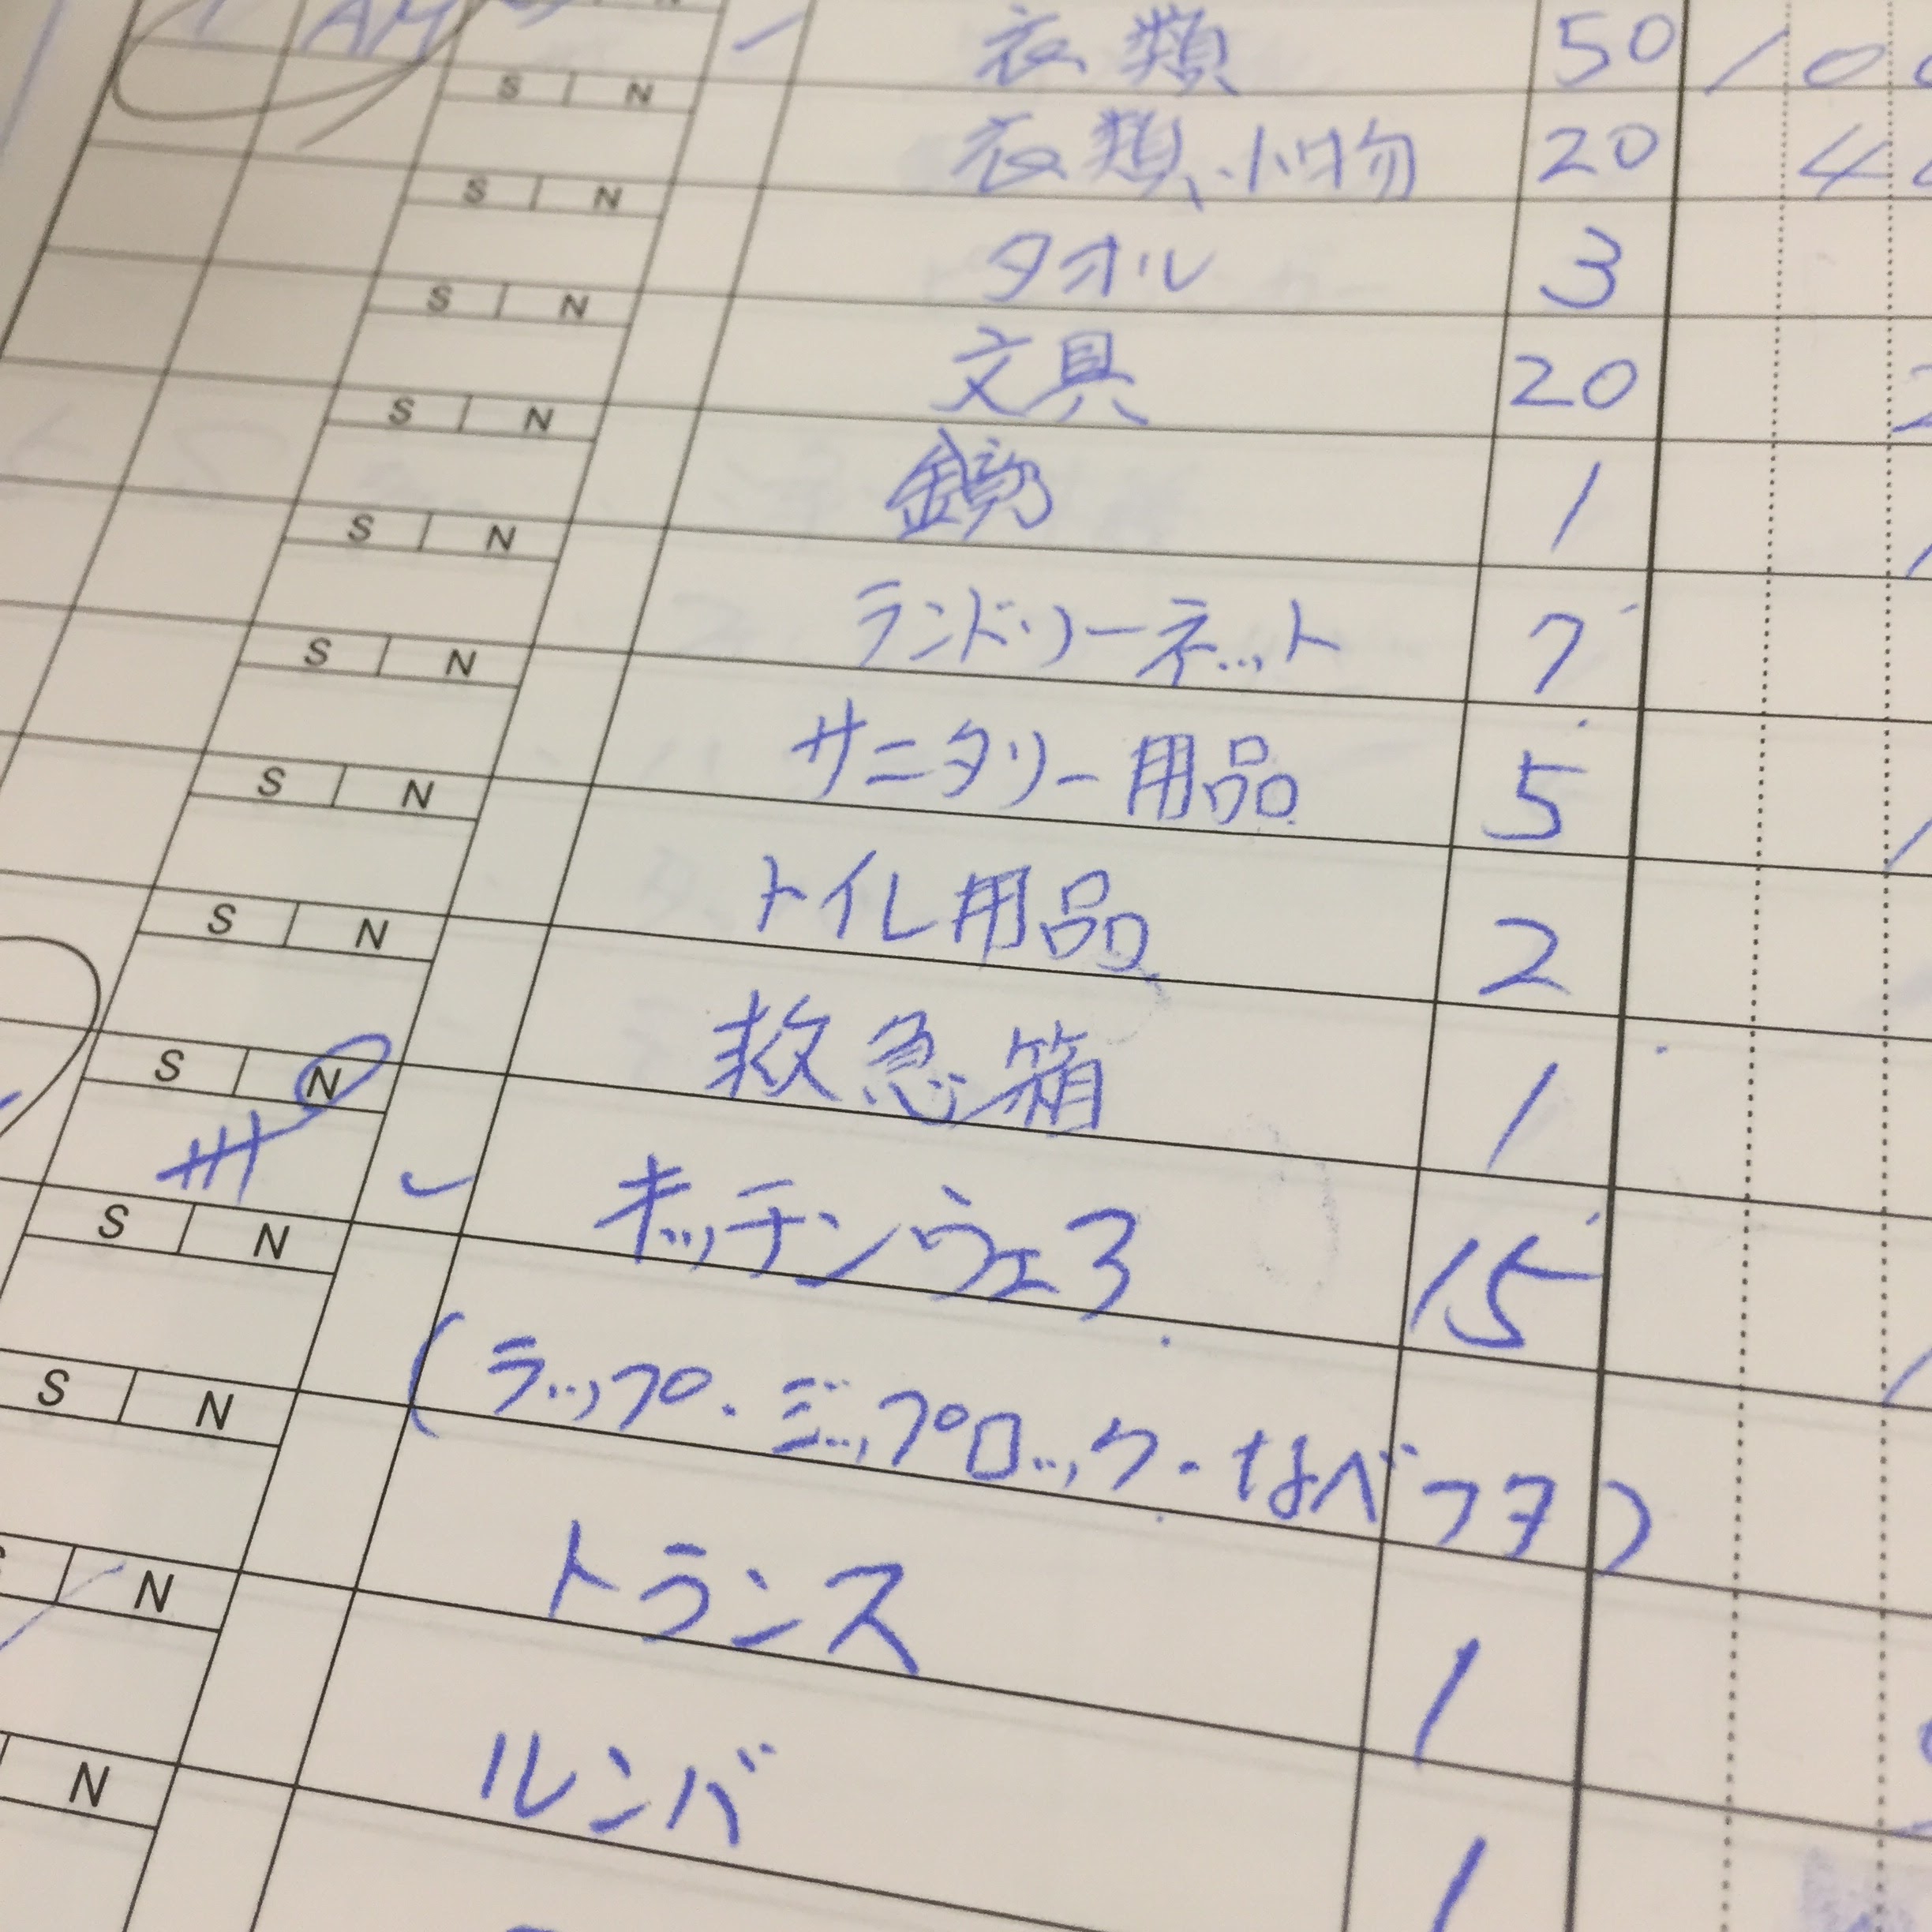 衣類 50 100
S N
衣類、小物 20 4
S N
タオル 3
S N
文具 20 2
S N
鏡 1
S N
ランドリーネット 7
S N
サニタリー用品 5
S N
トイレ用品 2
S N
救急箱 1
S N
キッチンウェア 15
S N
(ラップ・ジップロック・なべフタ)
S N
トランス 1
N
ルンバ 1
N